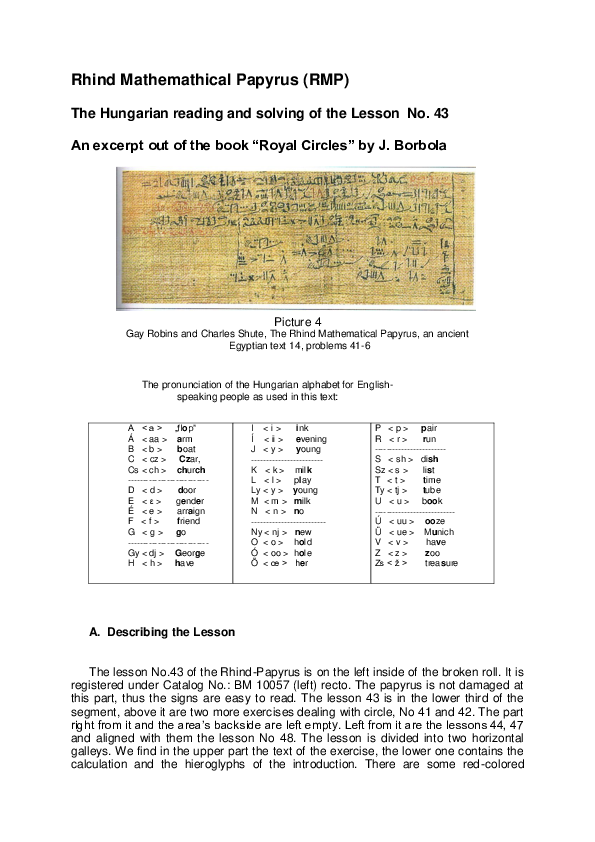 Rhind Mathemathical Papyrus (RMP)
The Hungarian reading and solving of the Lesson No. 43
An excerpt out of the book “Royal Circles” by J. Borbola
Picture 4
Gay Robins and Charles Shute, The Rhind Mathematical Papyrus, an ancient
Egyptian text 14, problems 41-6
The pronunciation of the Hungarian alphabet for English-
speaking people as used in this text:
A < a > „flop”
Á < aa > arm
B < b > boat
C < cz > Czar,
Cs < ch > church
---------------------------
D < d > door
E < ε > gender
É < e > arraign
F < f > friend
G < g > go
---------------------------
Gy < dj > George
H < h > have
I < i > ink
Í < ii > evening
J < y > young
------------------------
K < k > milk
L < l > play
Ly < y > young
M < m > milk
N < n > no
-------------------------
Ny < nj > new
O < o > hold
Ó < oo > hole
Ő < œ > her
P < p > pair
R < r > run
------------------------
S < sh > dish
Sz < s > list
T < t > time
Ty < tj > tube
U < u > book
---------------------------
Ú < uu > ooze
Ü < ue > Munich
V < v > have
Z < z > zoo
Zs < ž > treasure
A. Describing the Lesson
The lesson No.43 of the Rhind-Papyrus is on the left inside of the broken roll. It is
registered under Catalog No.: BM 10057 (left) recto. The papyrus is not damaged at
this part, thus the signs are easy to read. The lesson 43 is in the lower third of the
segment, above it are two more exercises dealing with circle, No 41 and 42. The part
right from it and the area’s backside are left empty. Left from it are the lessons 44, 47
and aligned with them the lesson No 48. The lesson is divided into two horizontal
galleys. We find in the upper part the text of the exercise, the lower one contains the
calculation and the hieroglyphs of the introduction. There are some red-colored